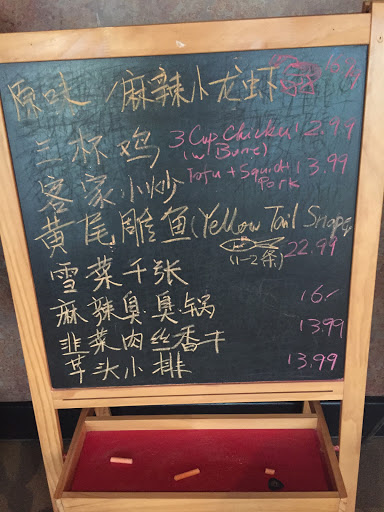 原味/麻辣小龙虾
三杯鸡 3 Cup Chicken 12.99
(w/ Bone)
客家小炒 Tofu + Squid + Pork 13.99
黄尾雕鱼 (Yellow Tail Snapper
(1-2条) 22.99
雪菜千张
麻辣臭臭锅 16.-
韭菜肉丝香干 13.99
芋头小排 13.99